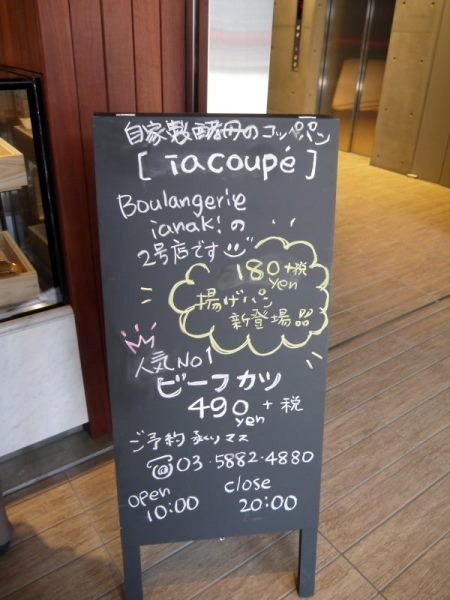 自家製酵母のコッペパン
[ iacoupé ]
Boulangerie
ianak!の
2号店です
180 yen +税
揚げパン
新登場品
人気No1
ビーフカツ
490 yen + 税
ご予約承リマス
☎03・5882・4880
open close
10:00 20:00